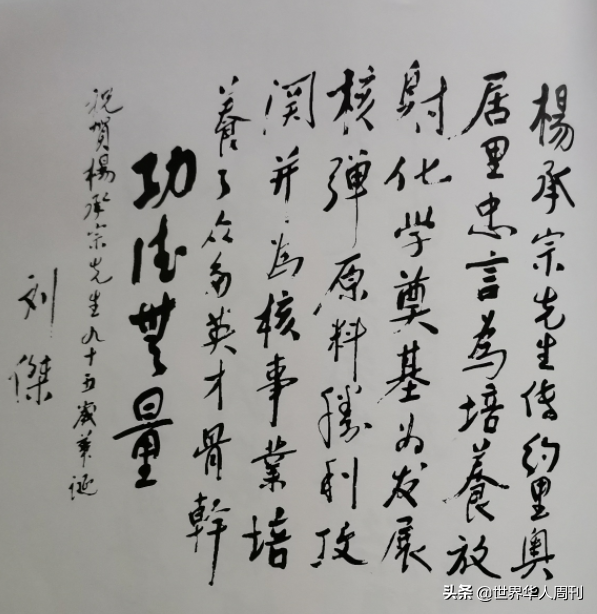 楊承宗先生传约里奥·
居里忠言為培養放
射化学奠基为发展
核弹原料勝利攻
関并为核事業培
養了众多英才骨幹
功德無量
祝賀楊承宗先生九十五歲華诞
刘傑
头条@世界华人周刊